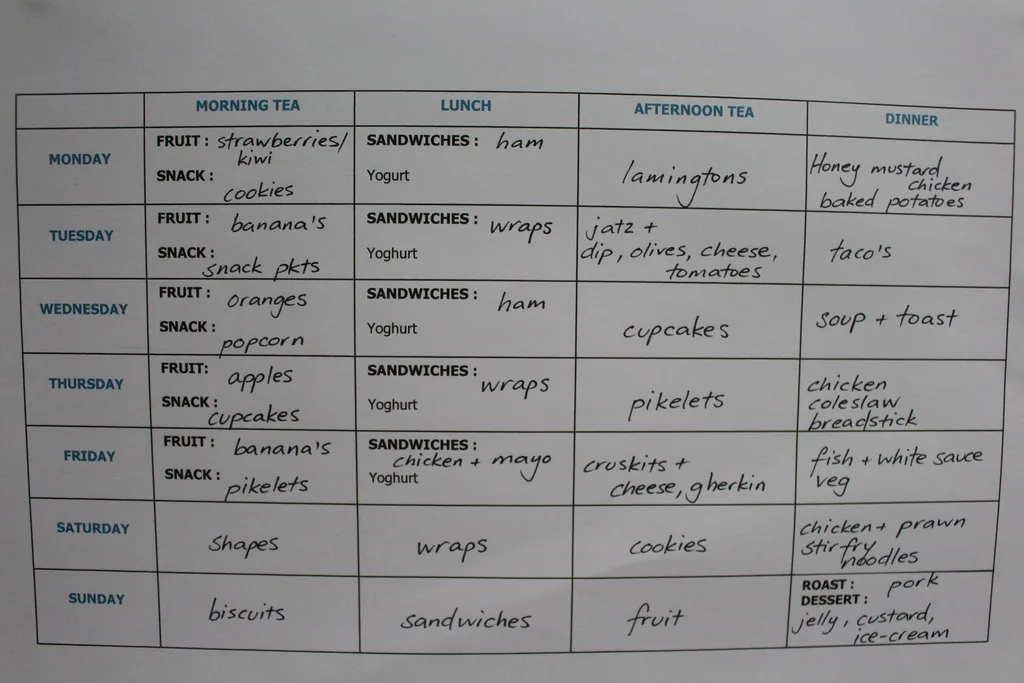 MORNING TEA LUNCH AFTERNOON TEA DINNER
MONDAY
FRUIT : strawberries/
kiwi
SNACK :
cookies
SANDWICHES : ham
Yogurt
lamingtons
Honey mustard
chicken
baked potatoes
TUESDAY
FRUIT : banana's
SNACK :
snack pkts
SANDWICHES : wraps
Yoghurt
jatz +
dip, olives, cheese,
tomatoes
taco's
WEDNESDAY
FRUIT : oranges
SNACK :
popcorn
SANDWICHES : ham
Yoghurt
cupcakes
soup + toast
THURSDAY
FRUIT: apples
SNACK :
cupcakes
SANDWICHES :
wraps
Yoghurt
pikelets
chicken
coleslaw
breadstick
FRIDAY
FRUIT : banana's
SNACK :
pikelets
SANDWICHES :
chicken + mayo
Yoghurt
cruskits +
cheese, gherkin
fish + white sauce
veg
SATURDAY
shapes
wraps
cookies
chicken + prawn
stirfry
noodles
SUNDAY
biscuits
sandwiches
fruit
ROAST : pork
DESSERT :
jelly, custard,
ice-cream